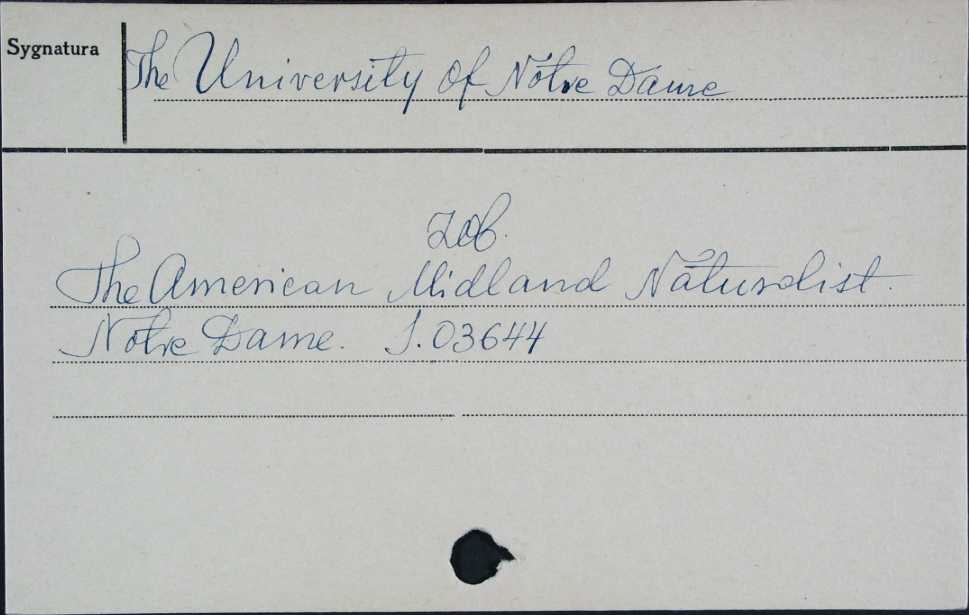 Sygnatura
The University of Notre Dame
zob.
The American Midland Naturalist.
Notre Dame. J.03644